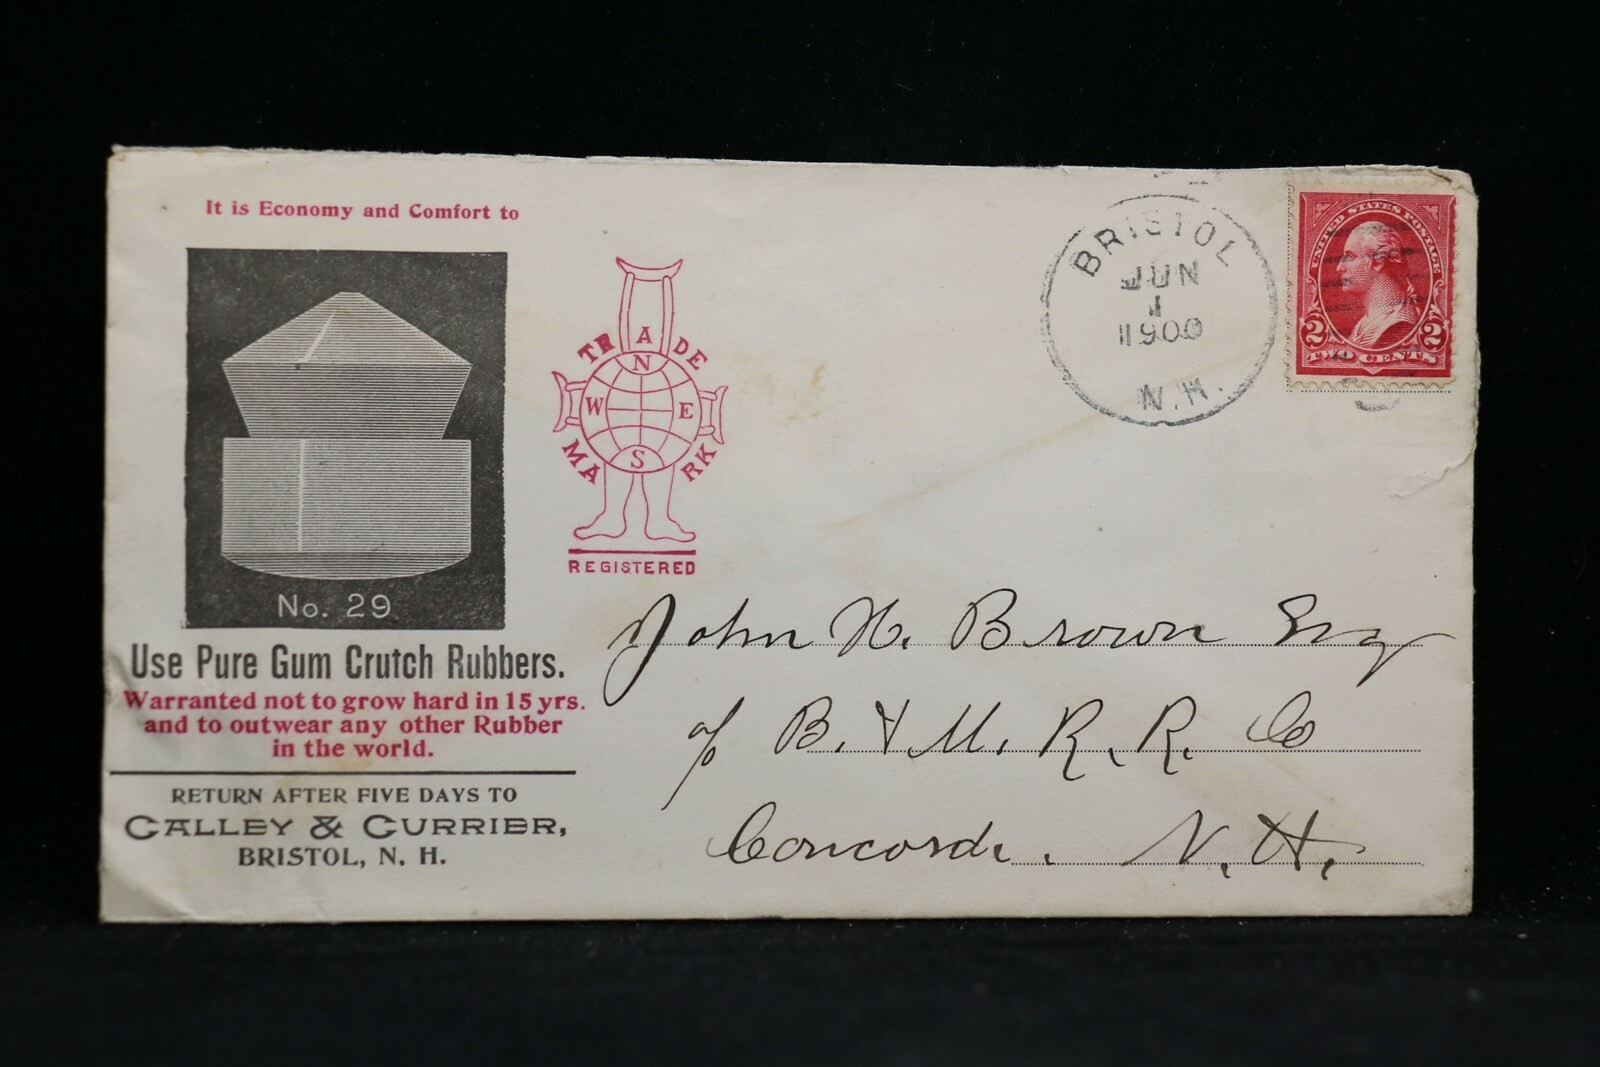 It is Economy and Comfort to
No. 29
Use Pure Gum Crutch Rubbers.
Warranted not to grow hard in 15 yrs.
and to outwear any other Rubber
in the world.
RETURN AFTER FIVE DAYS TO
CALLEY & CURRIER,
BRISTOL, N. H.
TRADE
N
W E
S
MARK
REGISTERED
BRISTOL
JUN
1
1900
N.H.
UNITED STATES POSTAGE
2 2
TWO CENTS
John H. Brown Esq
℅ B. & M. R. R. Co
Concord. N. H.